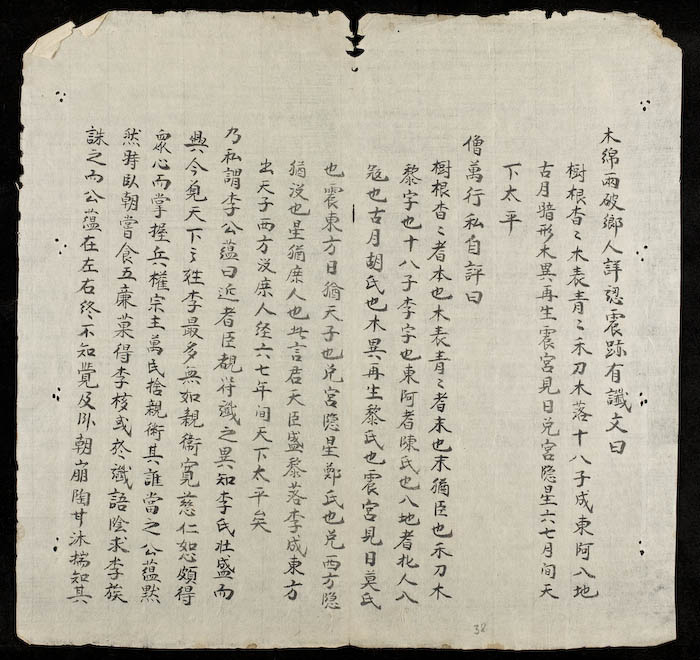 木綿雨破鄉人詳認震跡有讖文曰
樹根杳〻木表青〻禾刀木落十八子成東阿入地
古月暗形木異再生震宮見日兌宮隐星六七月间天
下太平
僧萬行私自評曰
樹根杳〻者本也木表青〻者本也末猶臣也禾刀木
黎字也十八子李字也東阿者陳氏也入地者北人入
寇也古月胡氏也木異再生黎氏也震宮見日莫氏
也震東方日猶天子也兌宮隐星鄭氏也兌西方隐
猶沒也星猶庶人也此言君夭臣盛黎落李成東方
出天子西方沒庶人经六七年间天下太平矣
乃私謂李公蕴曰近者臣覩符讖之異知李氏壮盛而
興今覓天下之姓李最多無如親衞寬慈仁恕頗得
衆心而掌握兵權宗主萬民捨親衞其誰當之公蕴黙
然時臥朝嘗食五亷菓得李核或於讖語陰求李族
誅之而公蕴在左右终不知覺及卧朝崩陶甘沐揣知其
38